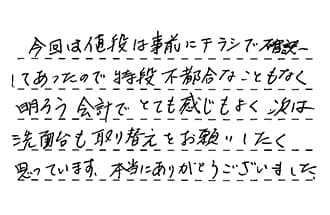 今回は値段は事前にチラシで確認
してあったので特段不都合なこともなく
明ろう会計でとても感じもよく次は
洗面台も取り替えをお願いしたく
思っています、本当にありがとうございました